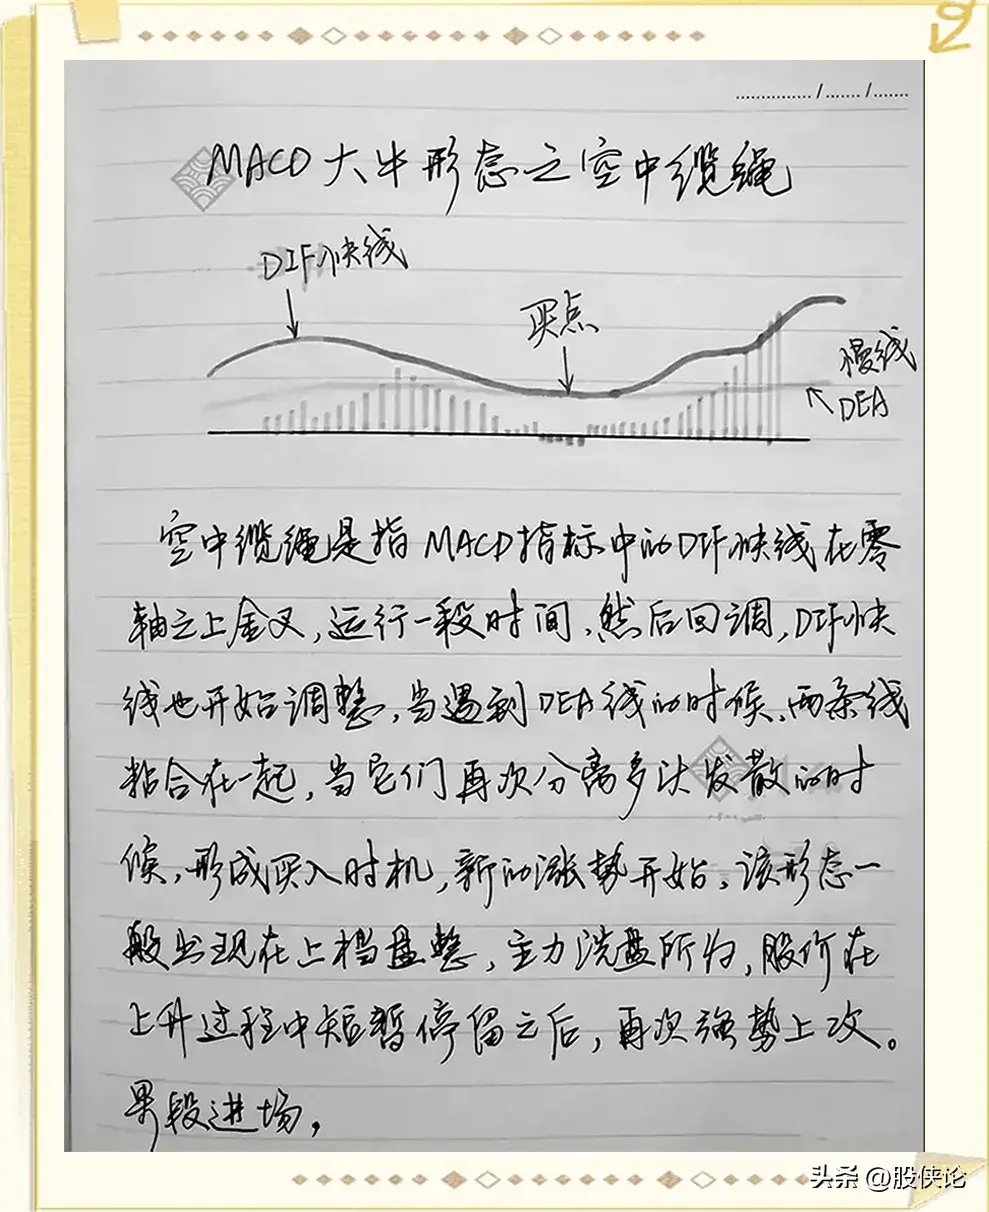 ............... / ....... / .......
MACD大牛形态之空中缆绳
DIF快线
买点
慢线
DEA
空中缆绳是指MACD指标中的DIF快线在零
轴之上金叉,运行一段时间,然后回调,DIF快
线也开始调整,当遇到DEA线的时候,两条线
粘合在一起,当它们再次分离多头发散的时
候,形成买入时机,新的涨势开始。该形态一
般出现在上档盘整,主力洗盘所为,股价在
上升过程中短暂停留之后,再次强势上攻。
果段进场,
头条 @股侠论